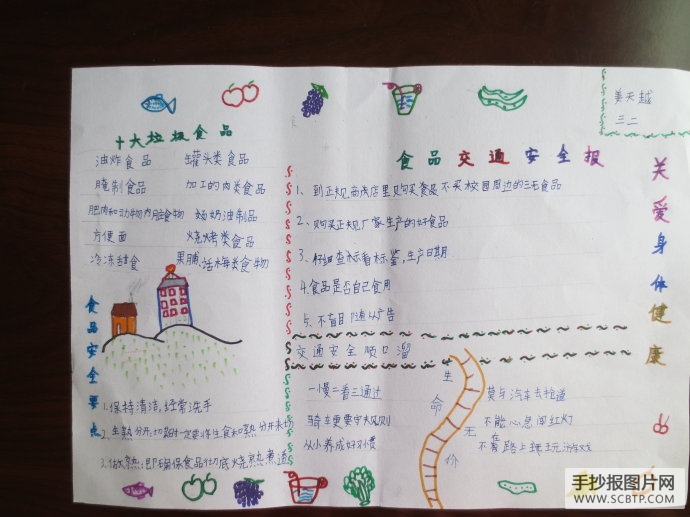 姜天越
三二
十大垃圾食品
油炸食品 罐头类食品
腌制食品 加工的肉类食品
肥肉和动物内脏食物 奶油制品
方便面 烧烤类食品
冷冻甜食 果脯、话梅类食物
食品安全要点
1、保持清洁,经常洗手
2、生熟分开,切菜时一定要将生食和熟分开来切
3、做熟:即确保食品彻底烧熟煮透
食品交通安全报
1、到正规商店里购买食品不买校园周边的三无食品
2、购买正规厂家生产的好食品
3、仔细查标看标签,生产日期
4、食品是否自己食用
5、不盲目随从广告
交通安全顺口溜
一慢二看三通过
骑车更要守规则
从小养成好习惯
生命无价
莫与汽车去抢道
不能心急闯红灯
不在路上玩游戏
关爱身体健康
手抄报图片网
WWW.SCBTP.COM